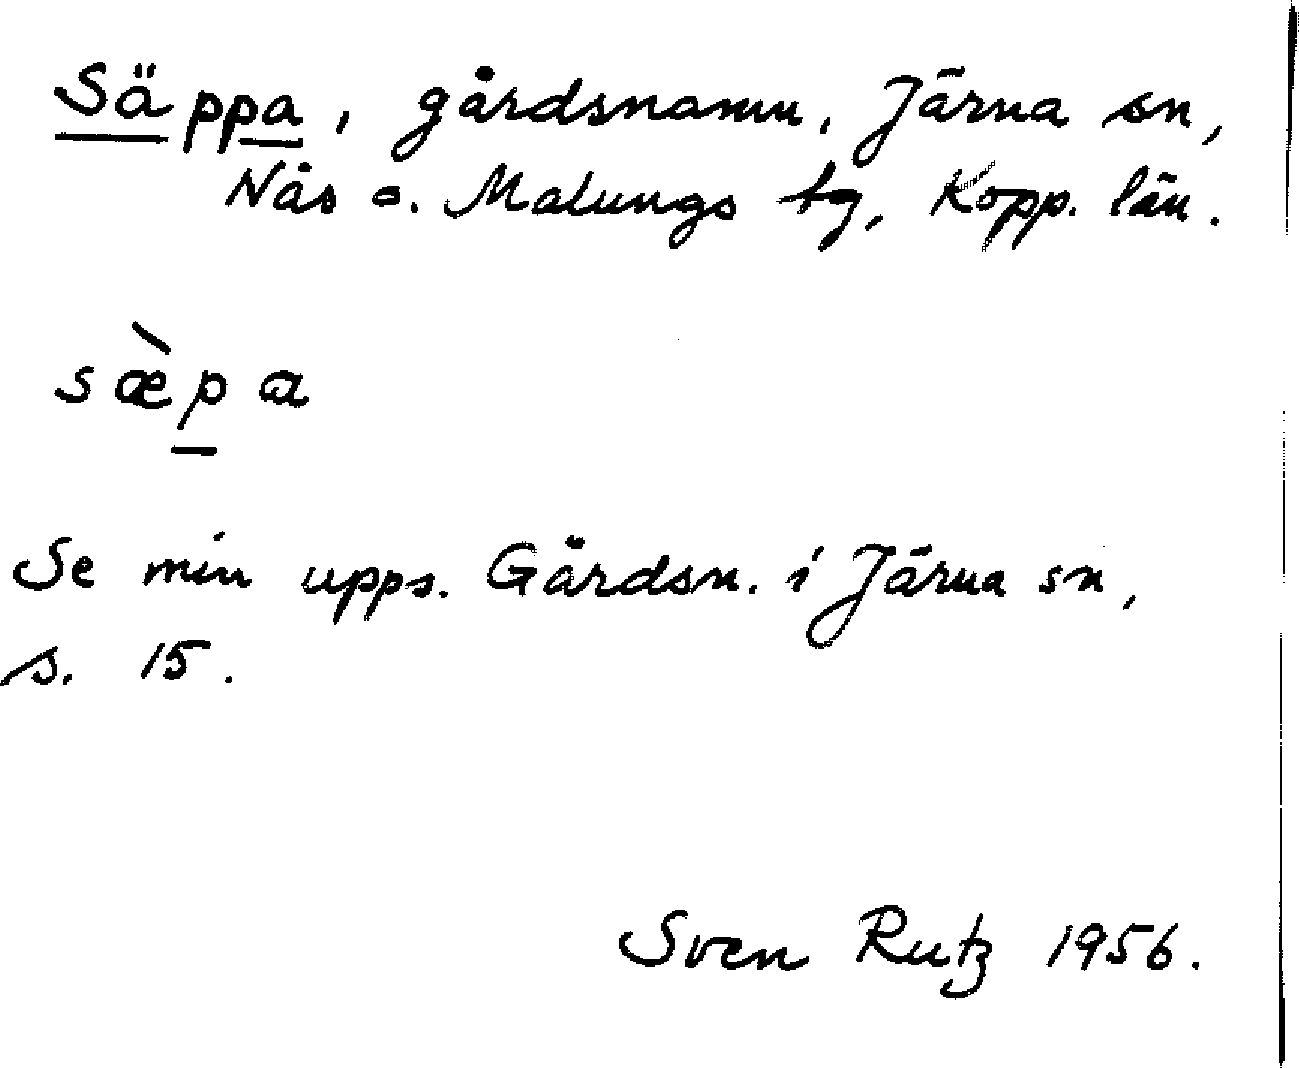 Säppa, gårdsnamn, Järna sn,
Nås o. Malungs tg, Kopp. län.
sæ̀p̲a
Se min upps. Gårdsn. i Järna sn,
s. 15.
Sven Rutz 1956.